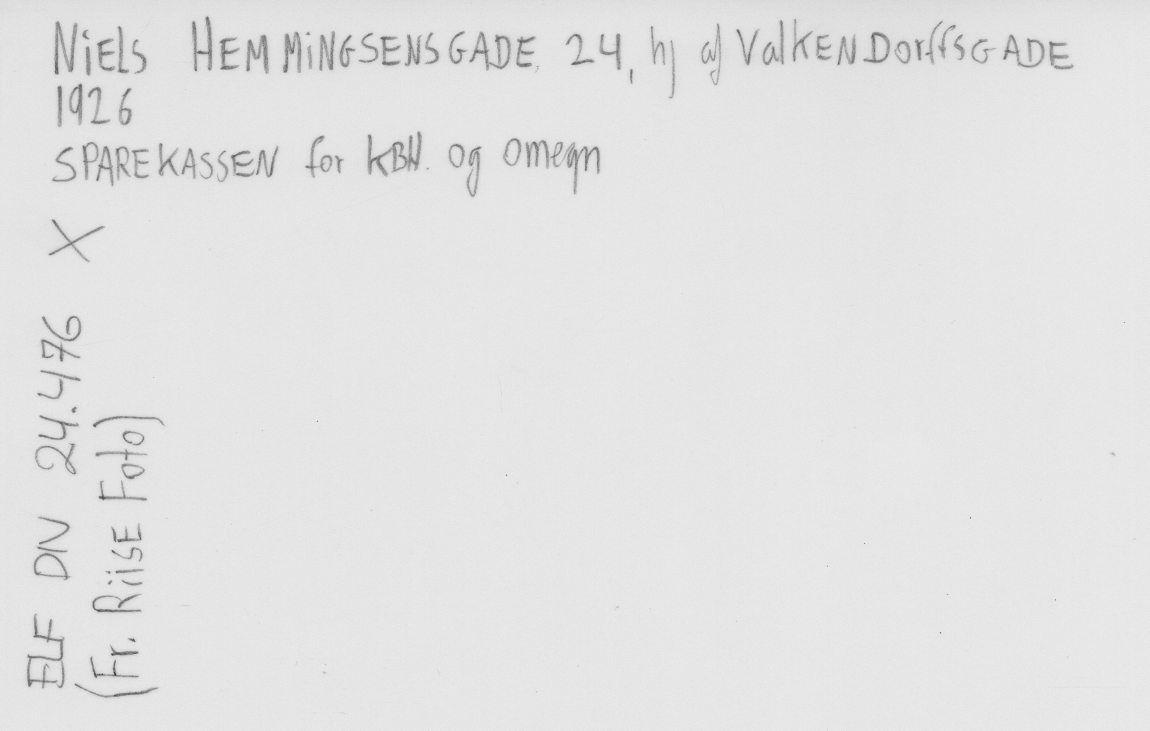 NiEls HEMMiNGSENSGADE. 24, hj af ValKENDorffsGADE
1926
SPAREKASSEN for KBH. og omegn
X
ELF DN 24.476
(Fr. RiisE Foto)